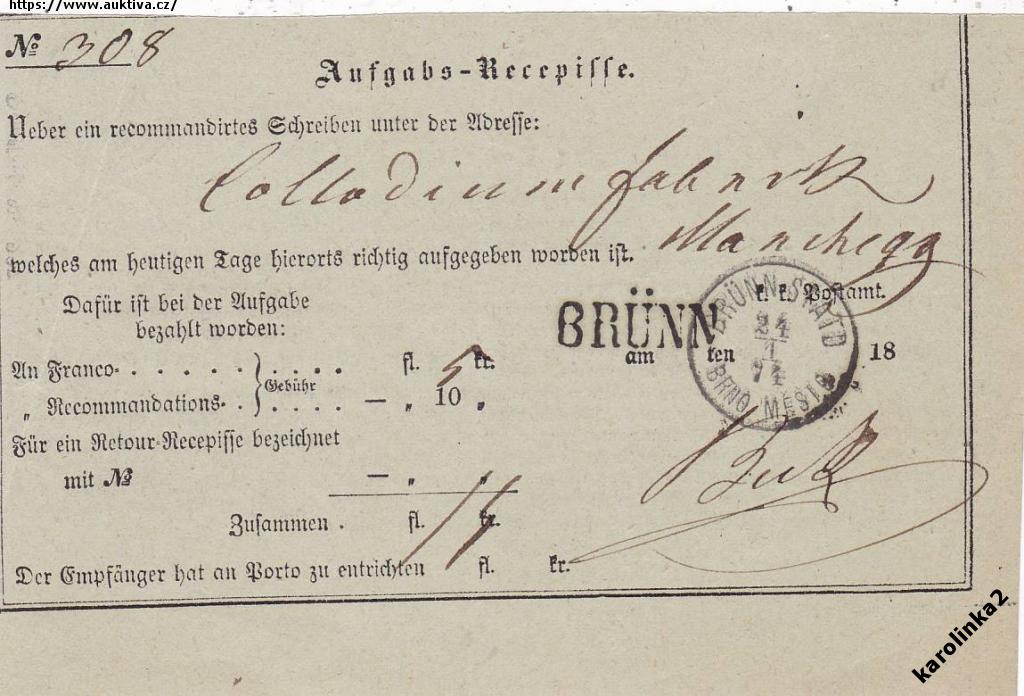 https://www.auktiva.cz/
№ 308
Aufgabs-Recepisse.
Ueber ein recommandirtes Schreiben unter der Adresse:
Collodiumfabrik
Marchegg
welches am heutigen Tage hierorts richtig aufgegeben worden ist.
Dafür ist bei der Aufgabe
bezahlt worden:
k. k. Postamt.
BRÜNN
am ten 18
BRÜNN STADT
24
1
74
BRNO MĚSTO
An Franco . . . . . . Gebühr . . . . fl. 5 kr.
„ Recommandations . . . . . . — „ 10 „
Für ein Retour-Recepisse bezeichnet
mit № — „ „
Zusammen . fl. kr.
Der Empfänger hat an Porto zu entrichten fl. kr.
karolinka2